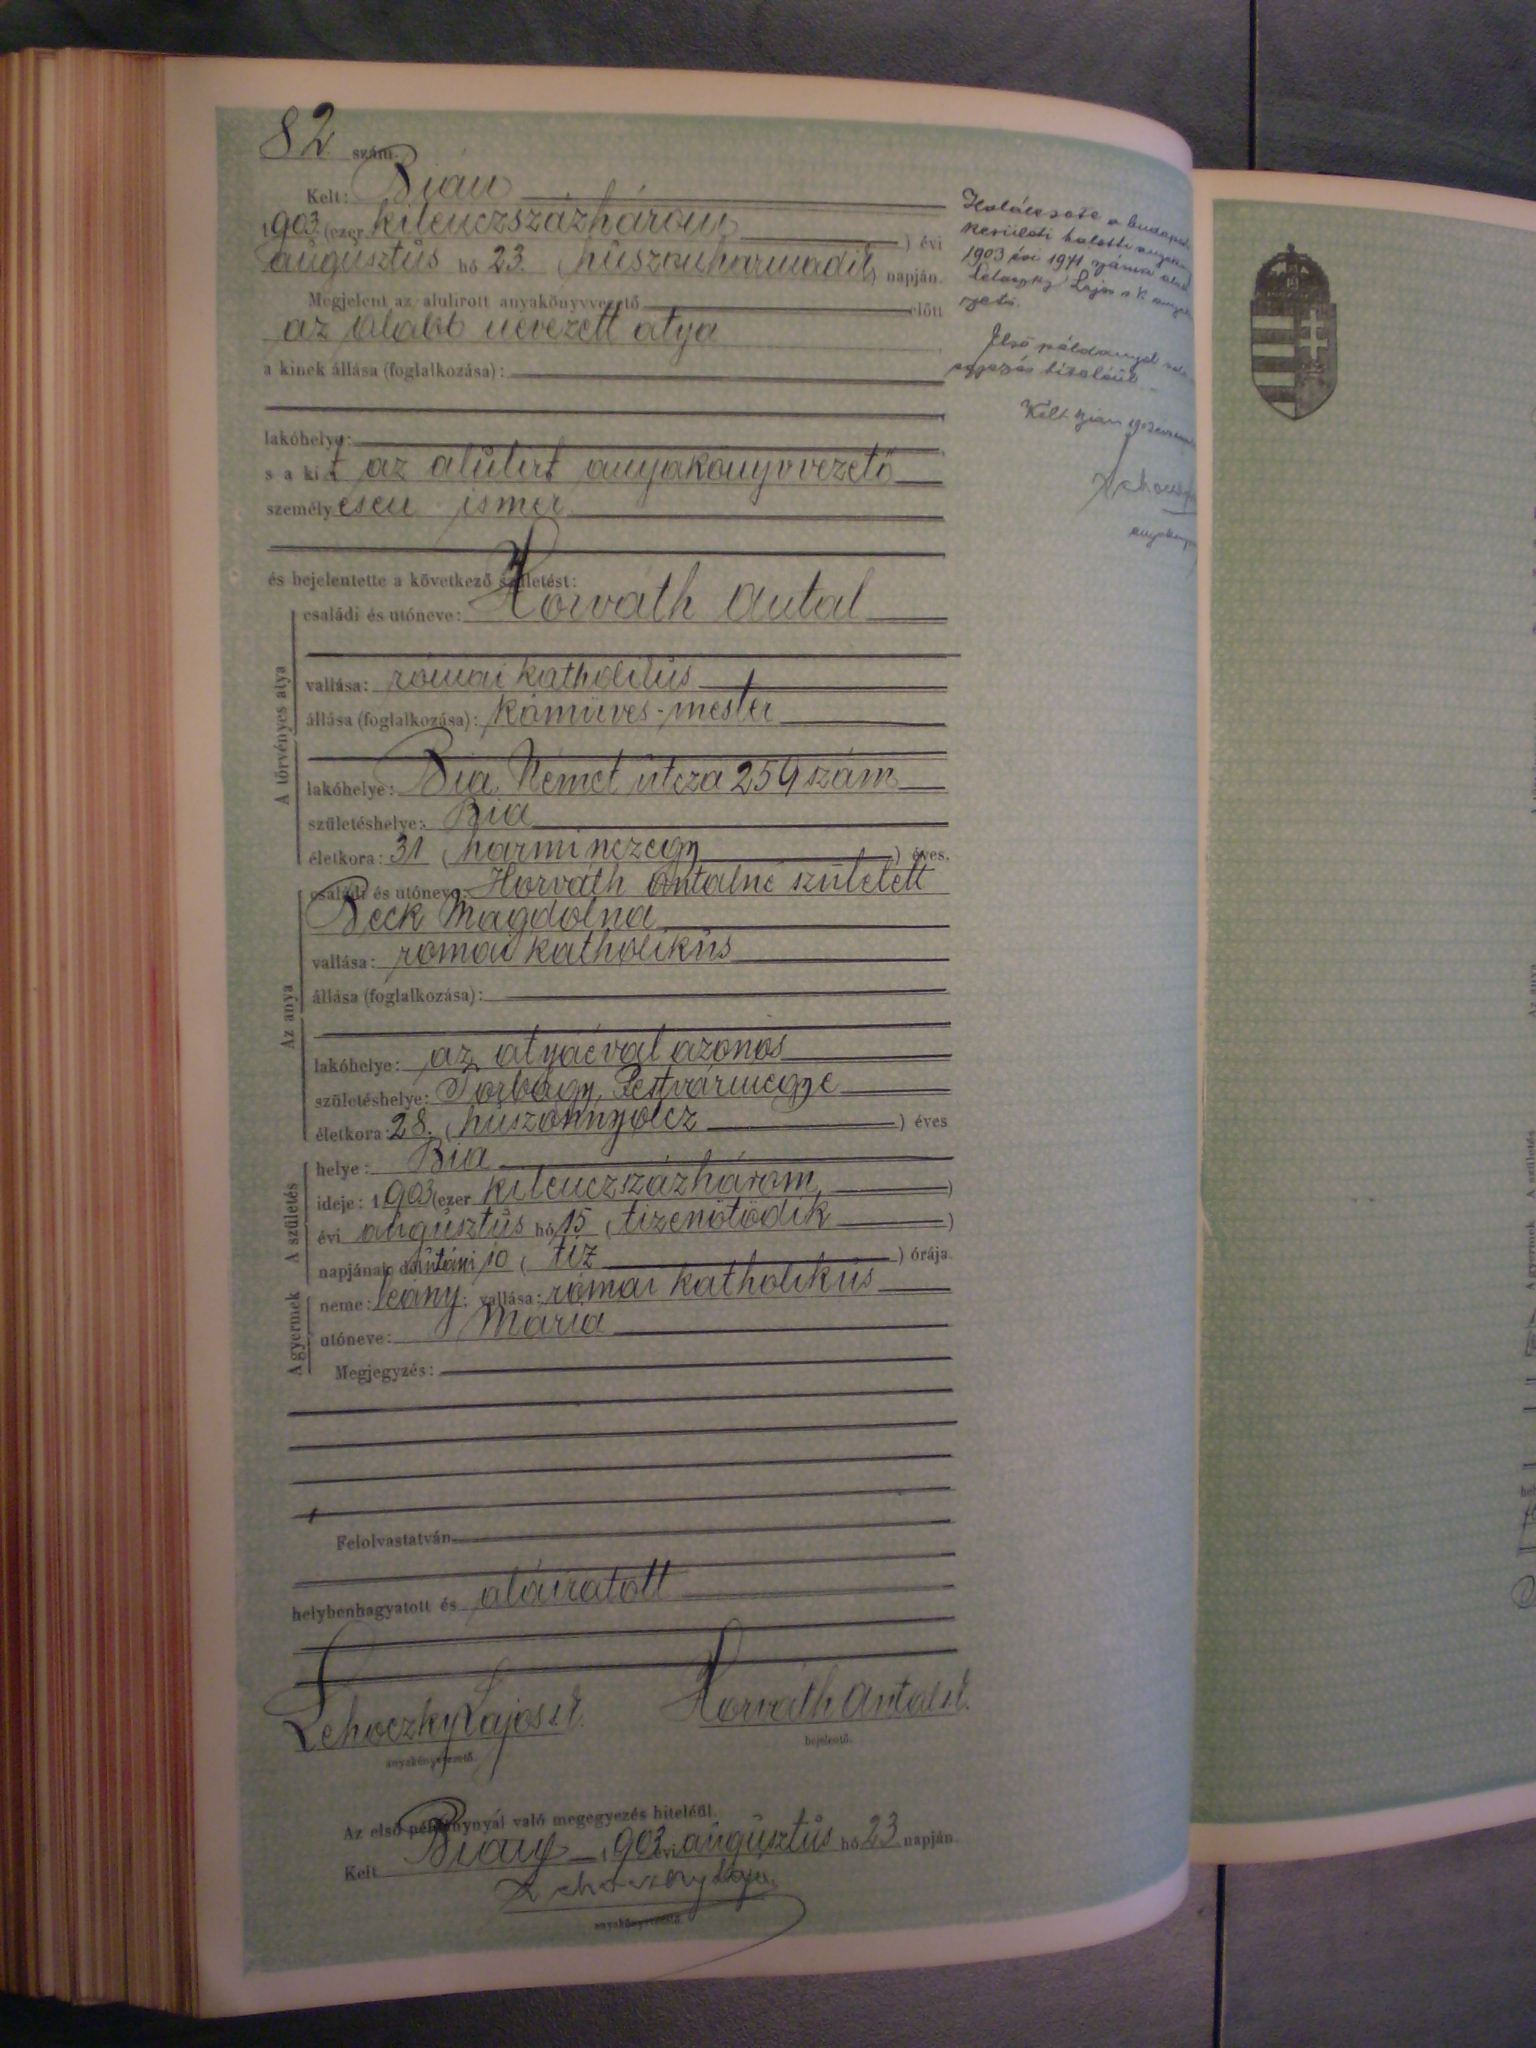 82 szám.
Kelt: Bián
1903 (ezer kilenczszázhárom) évi
augusztus hó 23. (huszonharmadik) napján.
Megjelent az alulirott anyakönyvvezető előtt
az alább nevezett atya
a kinek állása (foglalkozása):
lakóhelye:
s a kit az alulirt anyakönyvvezető
személyesen ismer
és bejelentette a következő születést:
A törvényes atya
családi és utóneve: Horváth Antal
vallása: római katholikus
állása (foglalkozása): kőműves-mester
lakóhelye: Bia Német utcza 259 szám
születéshelye: Bia
életkora: 31 (harminczegy) éves.
Az anya
családi és utóneve: Horváth Antalné született
Beck Magdolna
vallása: római katholikus
állása (foglalkozása):
lakóhelye: az atyáéval azonos
születéshelye: Torbágy, Pestvármegye
életkora: 28. (huszonnyolcz) éves
A születés
helye: Bia
ideje: 1903 (ezer kilenczszázhárom)
évi augusztus hó 15 (tizenötödik)
napjának délutáni 10 (tiz) órája.
A gyermek
neme: leány; vallása: római katholikus
utóneve: Mária
Megjegyzés:
Felolvastatván
helybenhagyatott és aláiratott
Lehoczky Lajos sk. Horváth Antal sk.
anyakönyvvezető. bejelentő.
Az első példánynyal való megegyezés hiteléül.
Kelt Bián, 1903 évi augusztus hó 23 napján.
Lehoczky Lajos
anyakönyvvezető.
Halálesete a budapesti
kerületi halotti
1903 évi 1971 száma alatt
Lajos
Első példánnyal való
egyezés hiteléül
Kelt Bián 1903